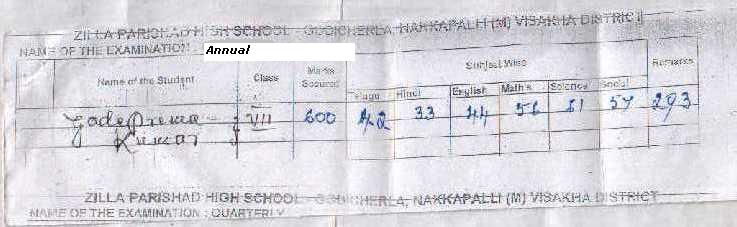 ZILLA PARISHAD HIGH SCHOOL - GODICHERLA, NAKKAPALLI (M) VISAKHA DISTRICT
NAME OF THE EXAMINATION : Annual
Name of the Student Class Marks Secured Subject Wise Remarks
Hindi English Maths Science Social
VII 600 42 33 44 56 61 57 293
Kumar
ZILLA PARISHAD HIGH SCHOOL - GODICHERLA, NAKKAPALLI (M) VISAKHA DISTRICT
NAME OF THE EXAMINATION : QUARTERLY